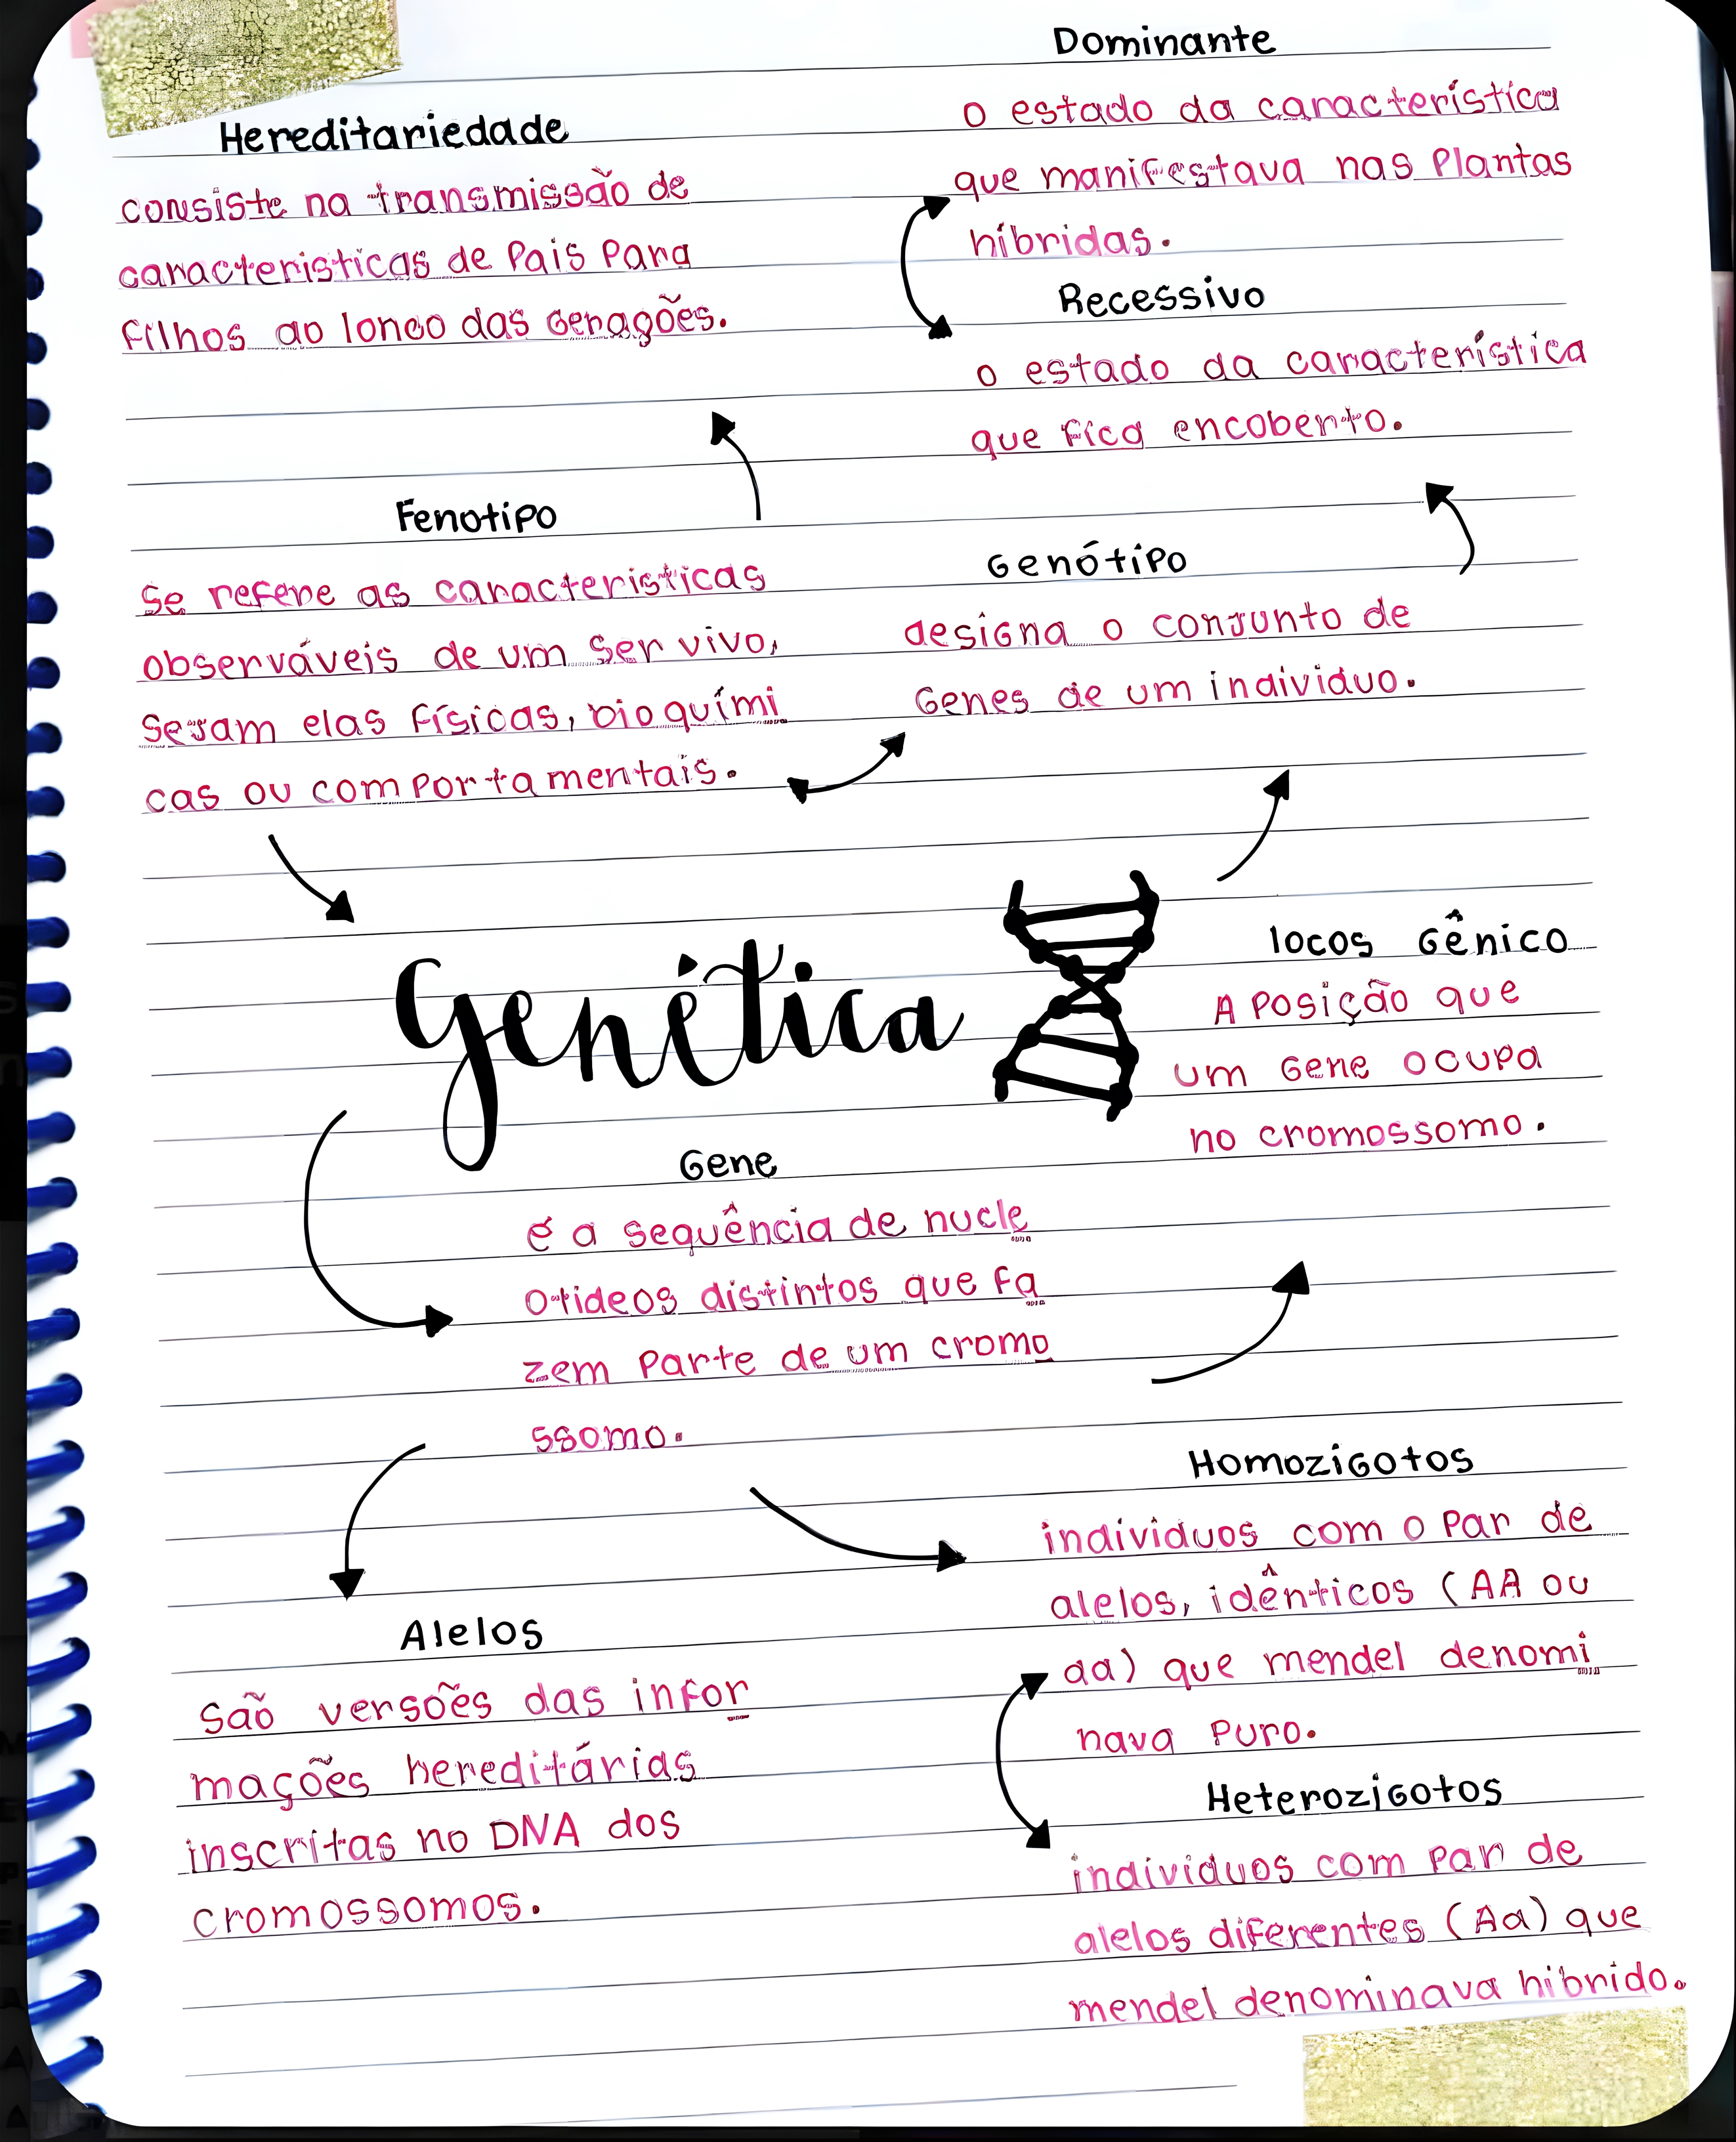 Hereditariedade
consiste na transmissão de
caracteristicas de Pais Para
filhos ao longo das gerações.
Dominante
o estado da característica
que manifestava nas Plantas
híbridas.
Recessivo
o estado da característica
que fica encoberto.
Fenotipo
se refere as caracteristicas
observáveis de um ser vivo,
sejam elas físicas, bioquími
cas ou comportamentais.
Genótipo
designa o conjunto de
Genes de um individuo.
Genética
locos Gênico
A Posição que
um Gene ocupa
no cromossomo.
Gene
é a sequência de nucle
otideos distintos que fa
zem Parte de um cromo
ssomo.
Alelos
são versões das infor
mações hereditárias
inscritas no DNA dos
cromossomos.
Homozigotos
individuos com o Par de
alelos, idênticos (AA ou
aa) que mendel denomi
nava Puro.
Heterozigotos
individuos com Par de
alelos diferentes (Aa) que
mendel denominava hibrido.